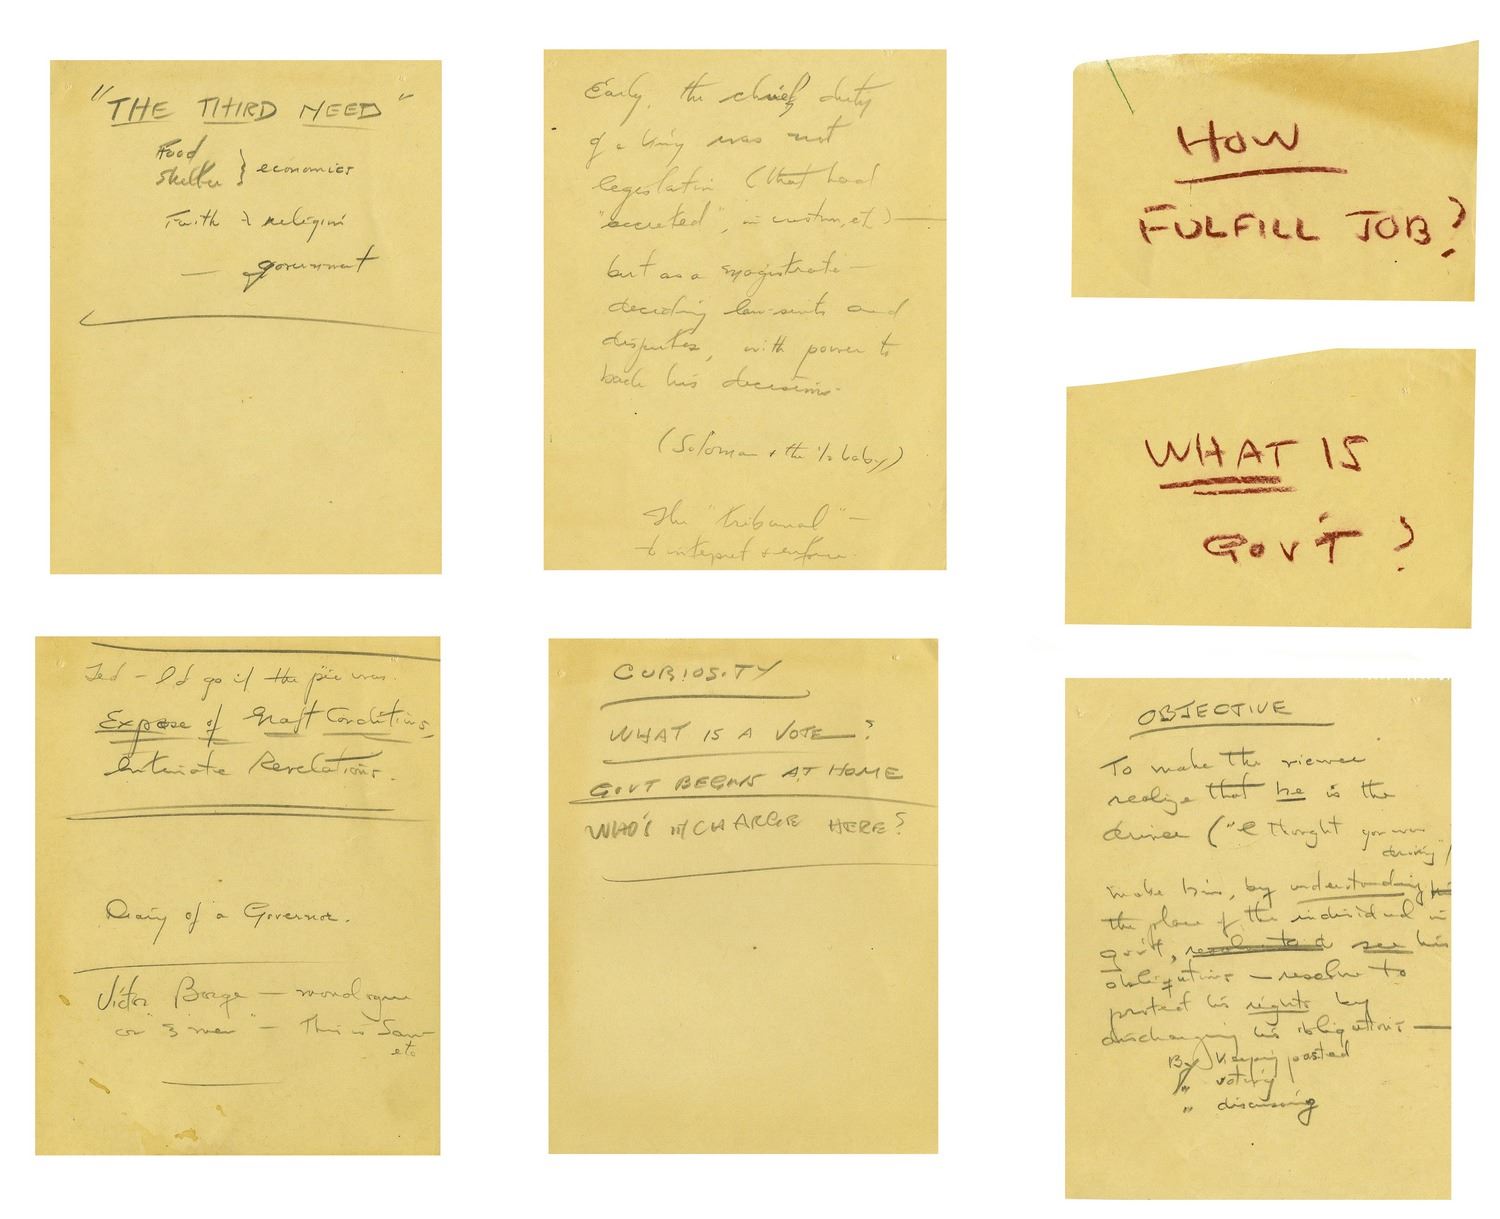 "THE THIRD NEED"
Food
Shelter } economics
Faith } religion
— government
Early, the chief duty
of a king was not
legislation (that had
"accreted", in custom, etc) —
but as a magistrate —
deciding law-suits and
disputes, with power to
back his decisions.
(Soloman + the 1/2 baby)
The "tribunal" —
to interpret + enforce.
HOW
FULFILL JOB?
WHAT IS
GOV'T ?
Ted - I'd go if the pic was.
Expose of Graft Conditions,
Intimate Revelations.
Diary of a Governor.
Victor Borge — monologue
or "3 men" — This is Sam
etc
CURIOSITY
WHAT IS A VOTE?
GOVT BEGINS AT HOME
WHO'S IN CHARGE HERE?
OBJECTIVE
To make the viewer
realize that he is the
driver ("I thought you were
driving")
make him, by understanding
the place of the individual in
gov't, see his
obligations — resolve to
protect his rights by
discharging his obligations —
By keeping posted
" voting
" discussing